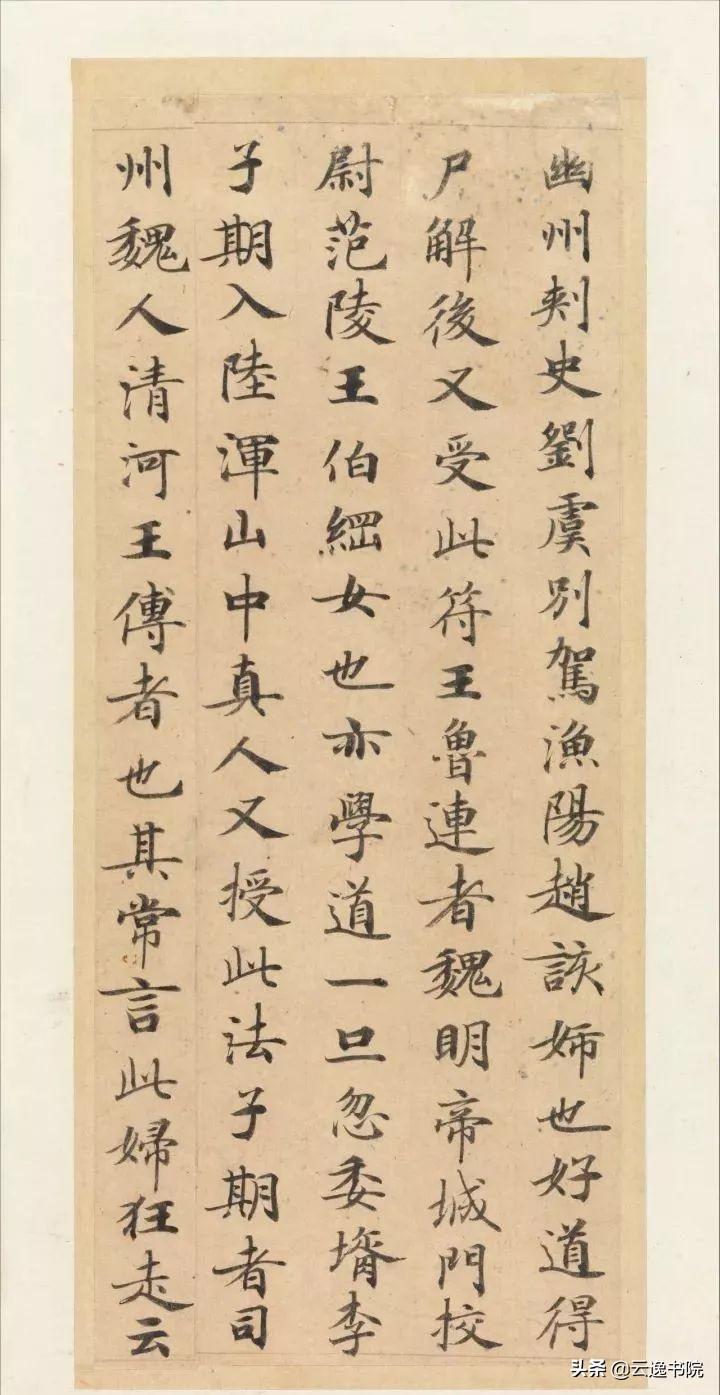 幽州刾史劉虞別駕漁陽趙該姉也好道得
尸解後又受此符王魯連者魏明帝城門校
尉范陵王伯綱女也亦學道一旦忽委壻李
子期入陸渾山中真人又授此法子期者司
州魏人清河王傅者也其常言此婦狂走云
头条 @云逸书院